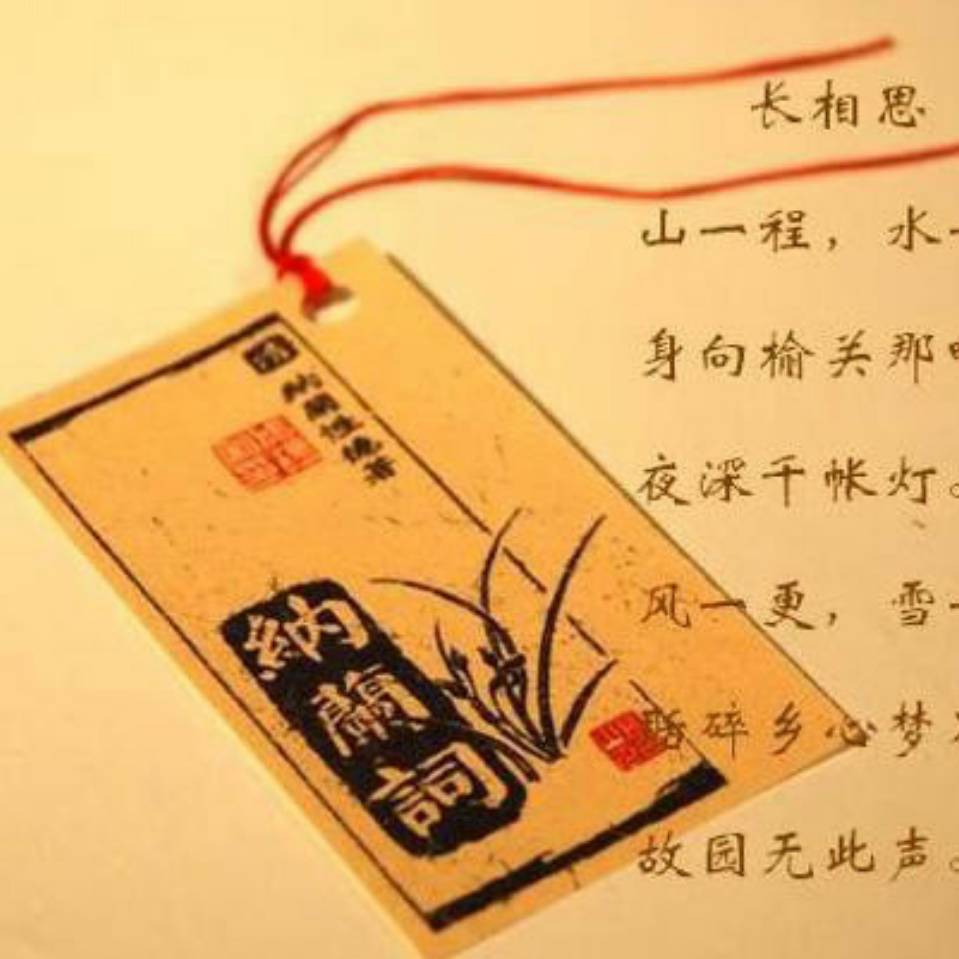 长相思
山一程，水一
身向榆关那
夜深千帐灯。
风一更，雪一
聒碎乡心梦
故园无此声。
納蘭性德著
納蘭詞